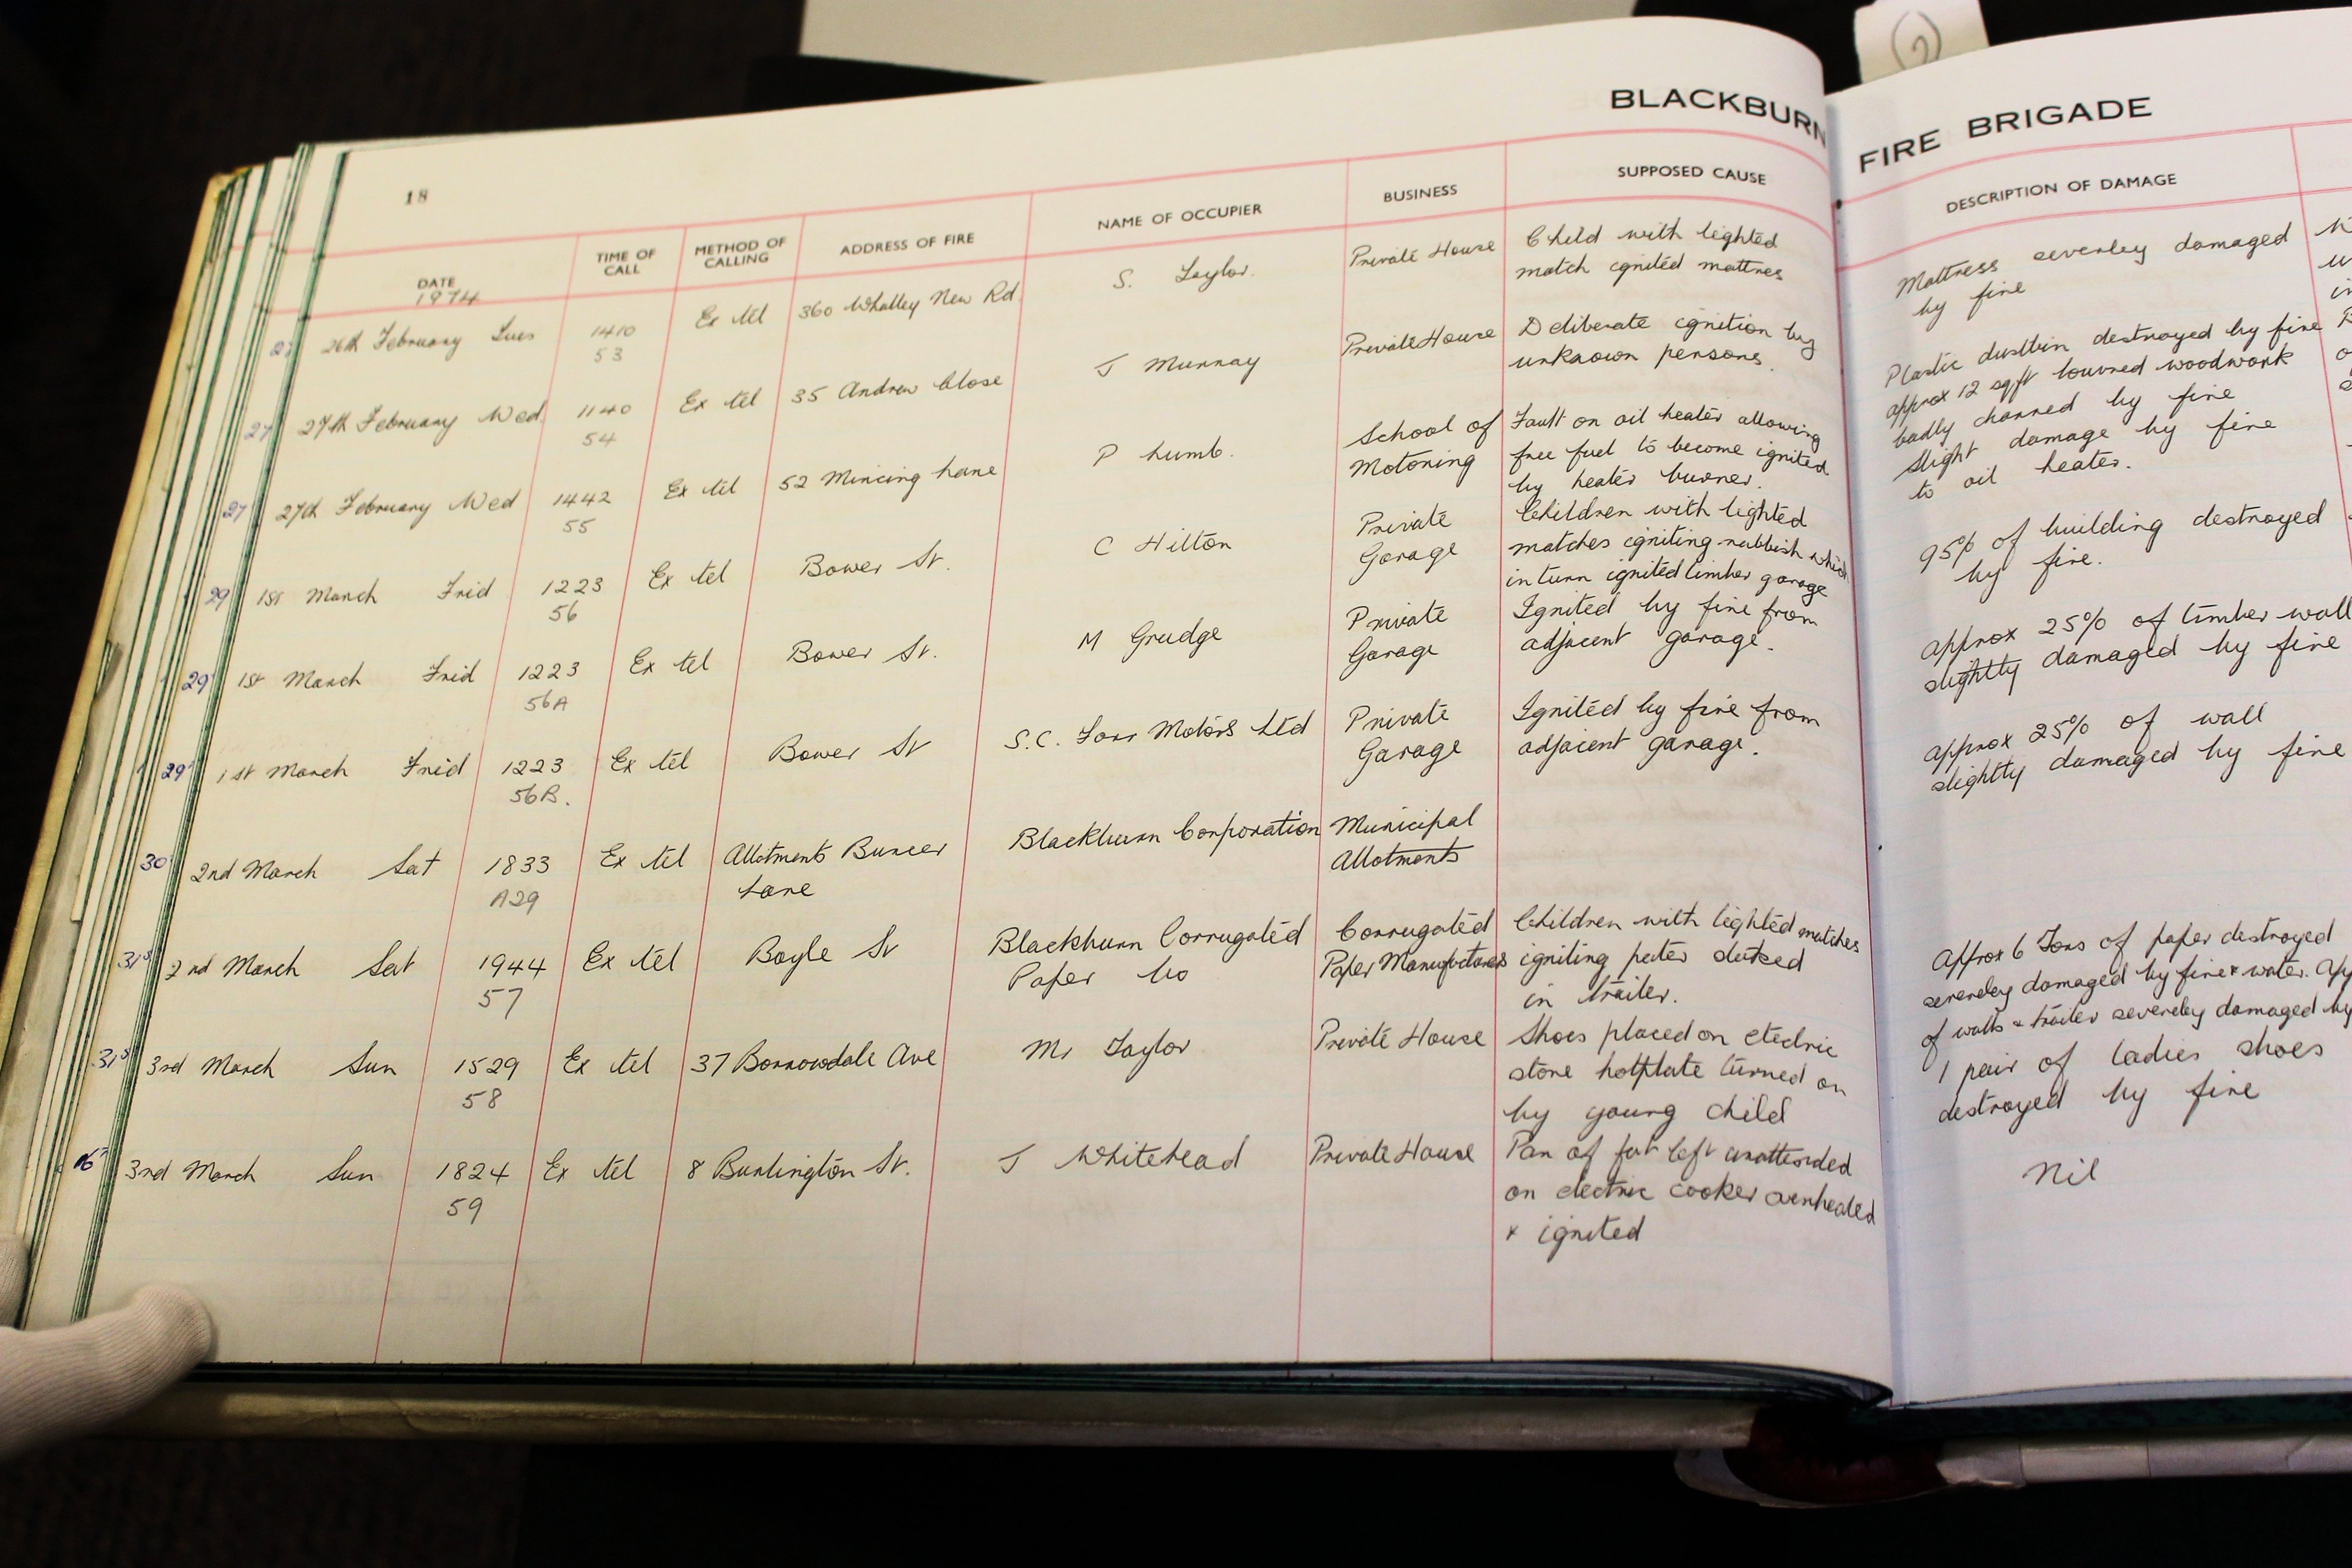 2
BLACKBURN FIRE BRIGADE
18
DATE
1974
TIME OF
CALL
METHOD OF
CALLING
ADDRESS OF FIRE
NAME OF OCCUPIER
BUSINESS
SUPPOSED CAUSE
DESCRIPTION OF DAMAGE
26th February Tues
1410
53
Ex tel
360 Whalley New Rd.
S. Taylor.
Private House
Child with lighted
match ignited mattres
Mattress severley damaged
by fire
27
27th February Wed
1140
54
Ex tel
35 Andrew Close
J Murray
Private House
Deliberate ignition by
unknown persons.
Plastic dustbin destroyed by fire
approx 12 sqft louvred woodwork
badly charred by fire
27
27th February Wed
1442
55
Ex tel
52 Mincing Lane
P Lumb.
School of
Motoring
Fault on oil heater allowing
free fuel to become ignited
by heater burner.
Slight damage by fire
to oil heater.
29
1st March Frid
1223
56
Ex tel
Bower St.
C Hilton
Private
Garage
Children with lighted
matches igniting rubbish which
in turn ignited timber garage
95% of building destroyed
by fire.
29
1st March Frid
1223
56A
Ex tel
Bower St.
M Grudge
Private
Garage
Ignited by fire from
adjacent garage.
approx 25% of timber wall
slightly damaged by fire
29
1st March Frid
1223
56B.
Ex tel
Bower St
S.C. Motors Ltd
Private
Garage
Ignited by fire from
adjacent garage.
approx 25% of wall
slightly damaged by fire
30
2nd March Sat
1833
A29
Ex tel
Allotments Buncer
Lane
Blackburn Corporation
Municipal
Allotments
31
2nd March Sat
1944
57
Ex tel
Boyle St
Blackburn Corrugated
Paper Co
Corrugated
Paper Manufacturers
Children with lighted matches
igniting paper stacked
in trailer.
Approx 6 Tons of paper destroyed
severeley damaged by fire & water.
of walls & trailer severeley damaged by
31
3rd March Sun
1529
58
Ex tel
37 Borrowdale Ave
Mr Taylor
Private House
Shoes placed on electric
stove hotplate turned on
by young child
1 pair of ladies shoes
destroyed by fire
3rd March Sun
1824
59
Ex tel
8 Burlington St.
J Whitehead
Private House
Pan of fat left unattended
on electric cooker overheated
& ignited
Nil